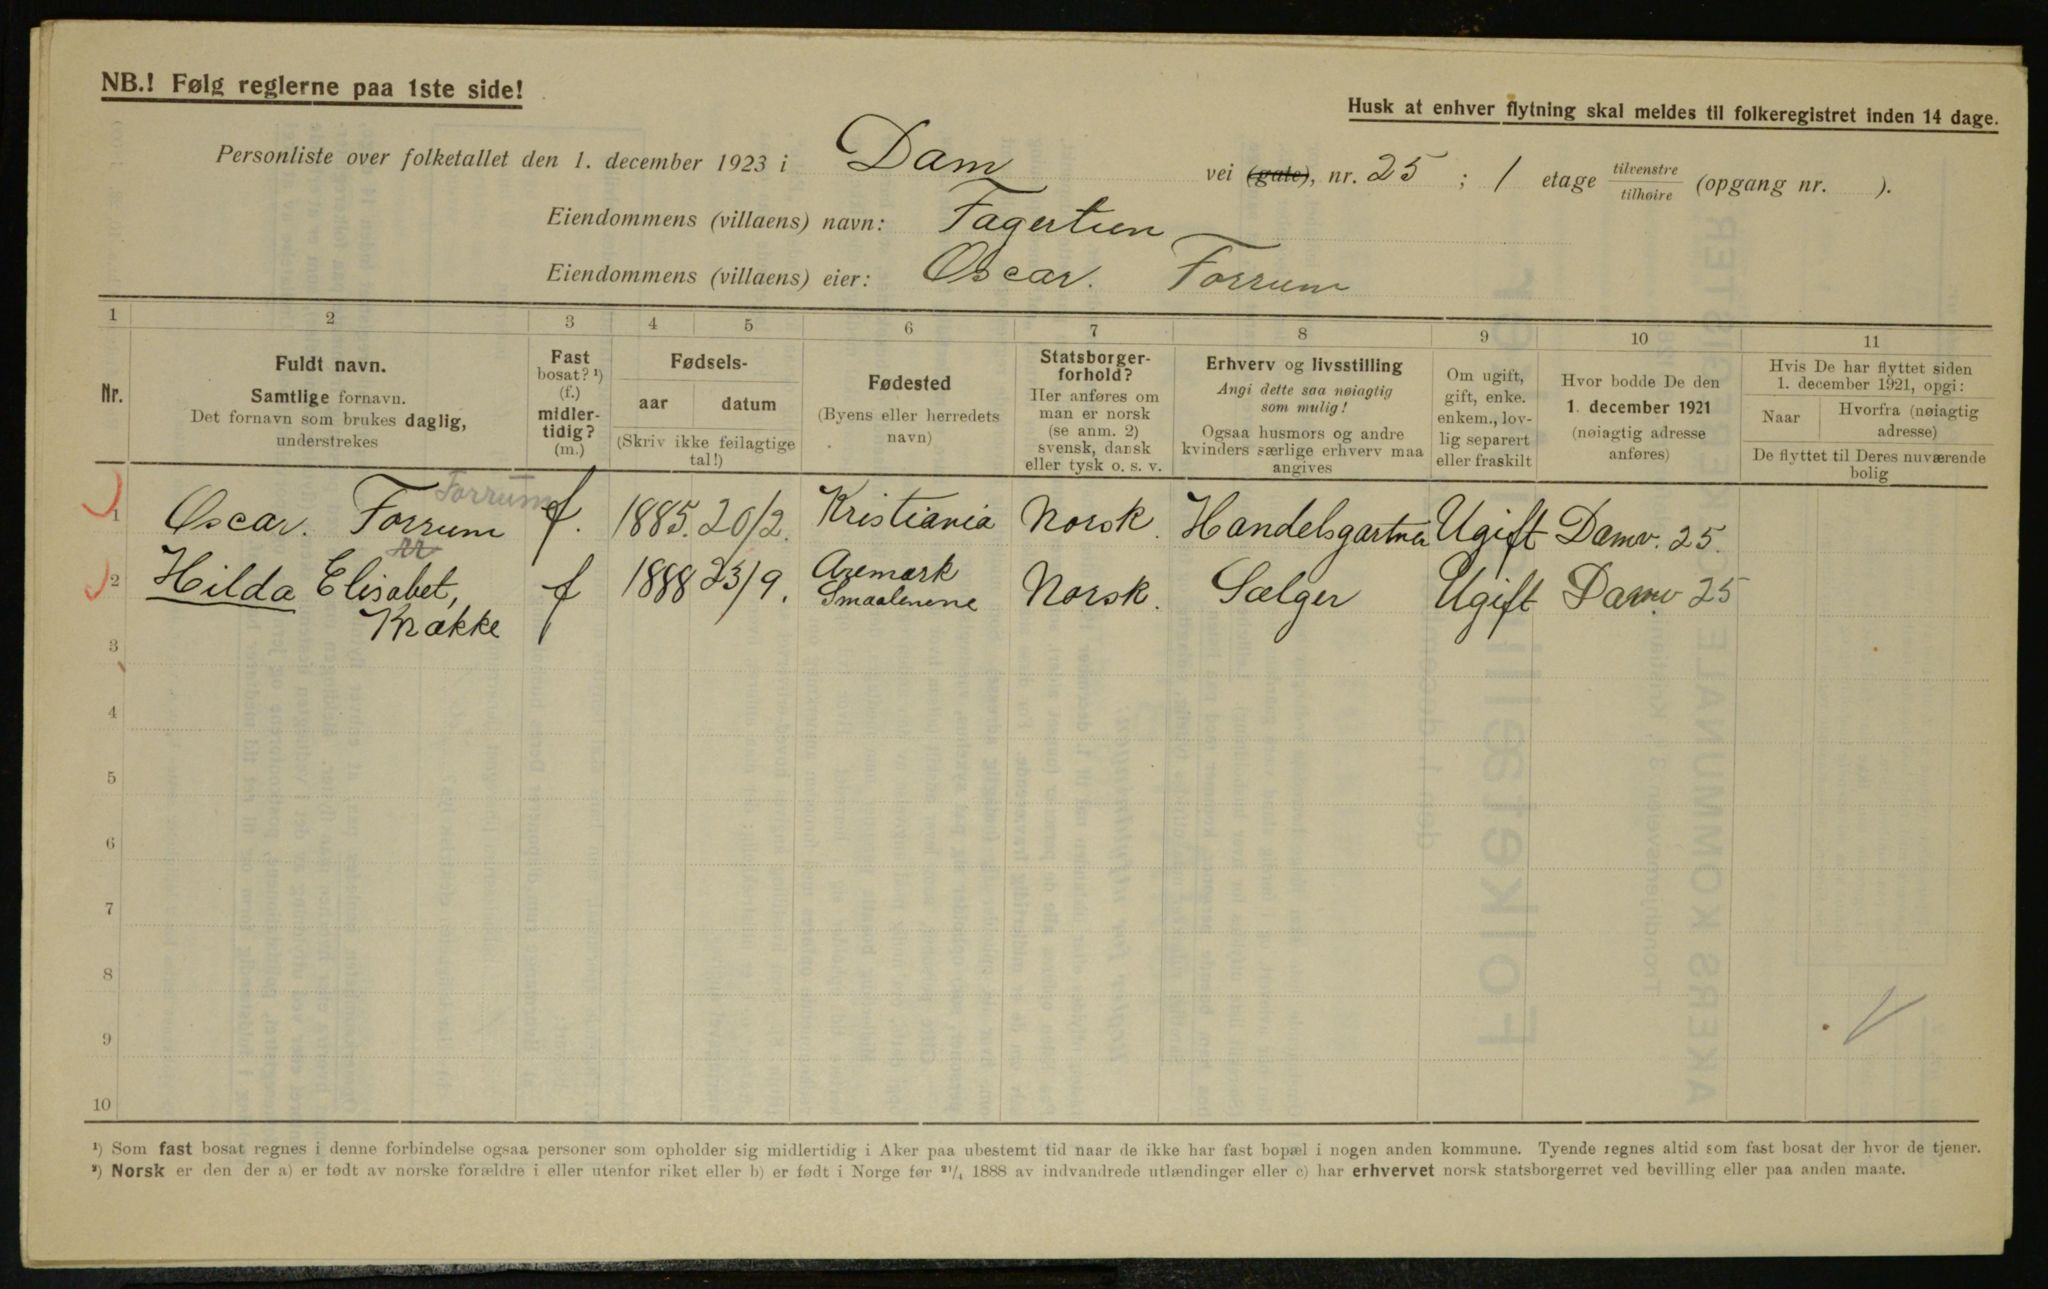 NB.! Følg reglerne paa 1ste side!
Husk at enhver flytning skal meldes til folkeregistret inden 14 dage.
Personliste over folketallet den 1. december 1923 i Dam vei (gate), nr. 25 ; 1 etage tilvenstre tilhøire (opgang nr. ).
Eiendommens (villaens) navn: Fagertun
Eiendommens (villaens) eier: Oscar. Forrum
1 2 3 4 5 6 7 8 9 10 11
Nr.
Fuldt navn.
Samtlige fornavn.
Det fornavn som brukes daglig,
understrekes
Fast
bosat? ¹)
(f.)
midler-
tidig?
(m.)
Fødsels-
aar datum
(Skriv ikke feilagtige
tal!)
Fødested
(Byens eller herredets
navn)
Statsborger-
forhold?
Her anføres om
man er norsk
(se anm. 2)
svensk, dansk
eller tysk o. s. v.
Erhverv og livsstilling
Angi dette saa nøiagtig
som mulig!
Ogsaa husmors og andre
kvinders særlige erhverv maa
angives
Om ugift,
gift, enke.
enkem., lov-
lig separert
eller fraskilt
Hvor bodde De den
1. december 1921
(nøiagtig adresse
anføres)
Hvis De har flyttet siden
1. december 1921, opgi:
Naar
Hvorfra (nøiagtig
adresse)
De flyttet til Deres nuværende
bolig
Forrum
1 Oscar. Forrum f. 1885. 20/2. Kristiania Norsk. Handelsgartner Ugift Damv. 25.
rr
2 Hilda Elisabet, Krække f 1888 23/9. Aremark Smaalenene Norsk. Sælger Ugift Damv 25
3
4
5
6
7
8
9
10
¹) Som fast bosat regnes i denne forbindelse ogsaa personer som opholder sig midlertidig i Aker paa ubestemt tid naar de ikke har fast bopæl i nogen anden kommune. Tyende regnes altid som fast bosat der hvor de tjener.
²) Norsk er den der a) er født av norske forældre i eller utenfor riket eller b) er født i Norge før ²¹/₄ 1888 av indvandrede utlændinger eller c) har erhvervet norsk statsborgerret ved bevilling eller paa anden maate.